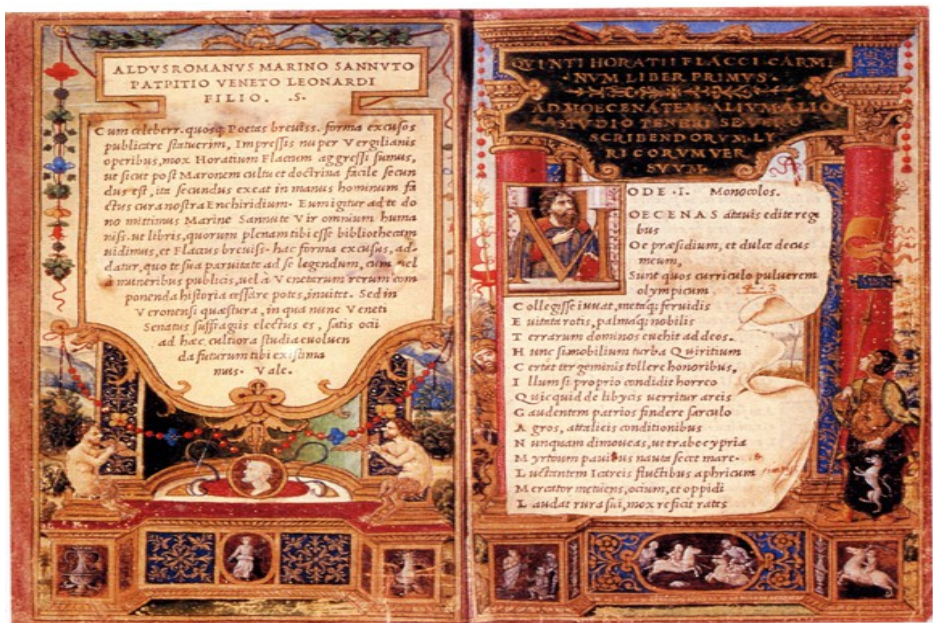 ALDVS ROMANVS MARINO SANNVTO
PATRITIO VENETO LEONARDI
FILIO. .S.
Cum celeberr. quosq; Poetas breuiss. forma excusos
publicare statuerim, Impressis nuper Vergilianis
operibus, mox Horatium Flaccum aggressi sumus,
ut sicut post Maronem cultu et doctrina facile secun
dus est, ita secundus exeat in manus hominum fa
ctus cura nostra Enchiridium. Eum igitur ad te do
no mittimus Marine Sannute Vir omnium huma
niss. ut libris, quorum plenam tibi esse bibliothecam
uidimus, et Flaccus breuiss. hac forma excusus, ad-
datur, quo te sua paruitate ad se legendum, cum uel
a muneribus publicis, uel a Venetarum rerum com
ponenda historia cessare potes, inuitet. Sed in
Veronensi quæstura, in qua nunc Veneti
Senatus suffragiis electus es, satis ocii
ad hæc cultiora studia euoluen
da futurum tibi existima
mus. Vale.
QVINTI HORATII FLACCI CARMI
NVM LIBER PRIMVS.
AD MOECENATEM, ALIVM ALIO
STVDIO TENERI SE LYRICO
SCRIBENDORVM LY
RICORVM VER
SVVM.
ODE .I. Monocolos.
M
OECENAS atauis edite regi
bus
O et præsidium, et dulce decus
meum,
Sunt quos curriculo puluerem
olympicum
Collegisse iuuat, metaq; feruidis
Euitata rotis, palmaq; nobilis
Terrarum dominos euehit ad deos.
Hunc si mobilium turba Quiritium
Certat tergeminis tollere honoribus,
Illum si proprio condidit horreo
Quicquid de libycis uerritur areis
Gaudentem patrios findere sarculo
Agros, attalicis conditionibus
Nunquam dimoueas, ut trabe cypria
Myrtoum pauidus nauta secet mare.
Luctantem Icareis fluctibus aphricum
Mercator metuens, ocium, et oppidi
Laudat rura sui, mox reficit rates